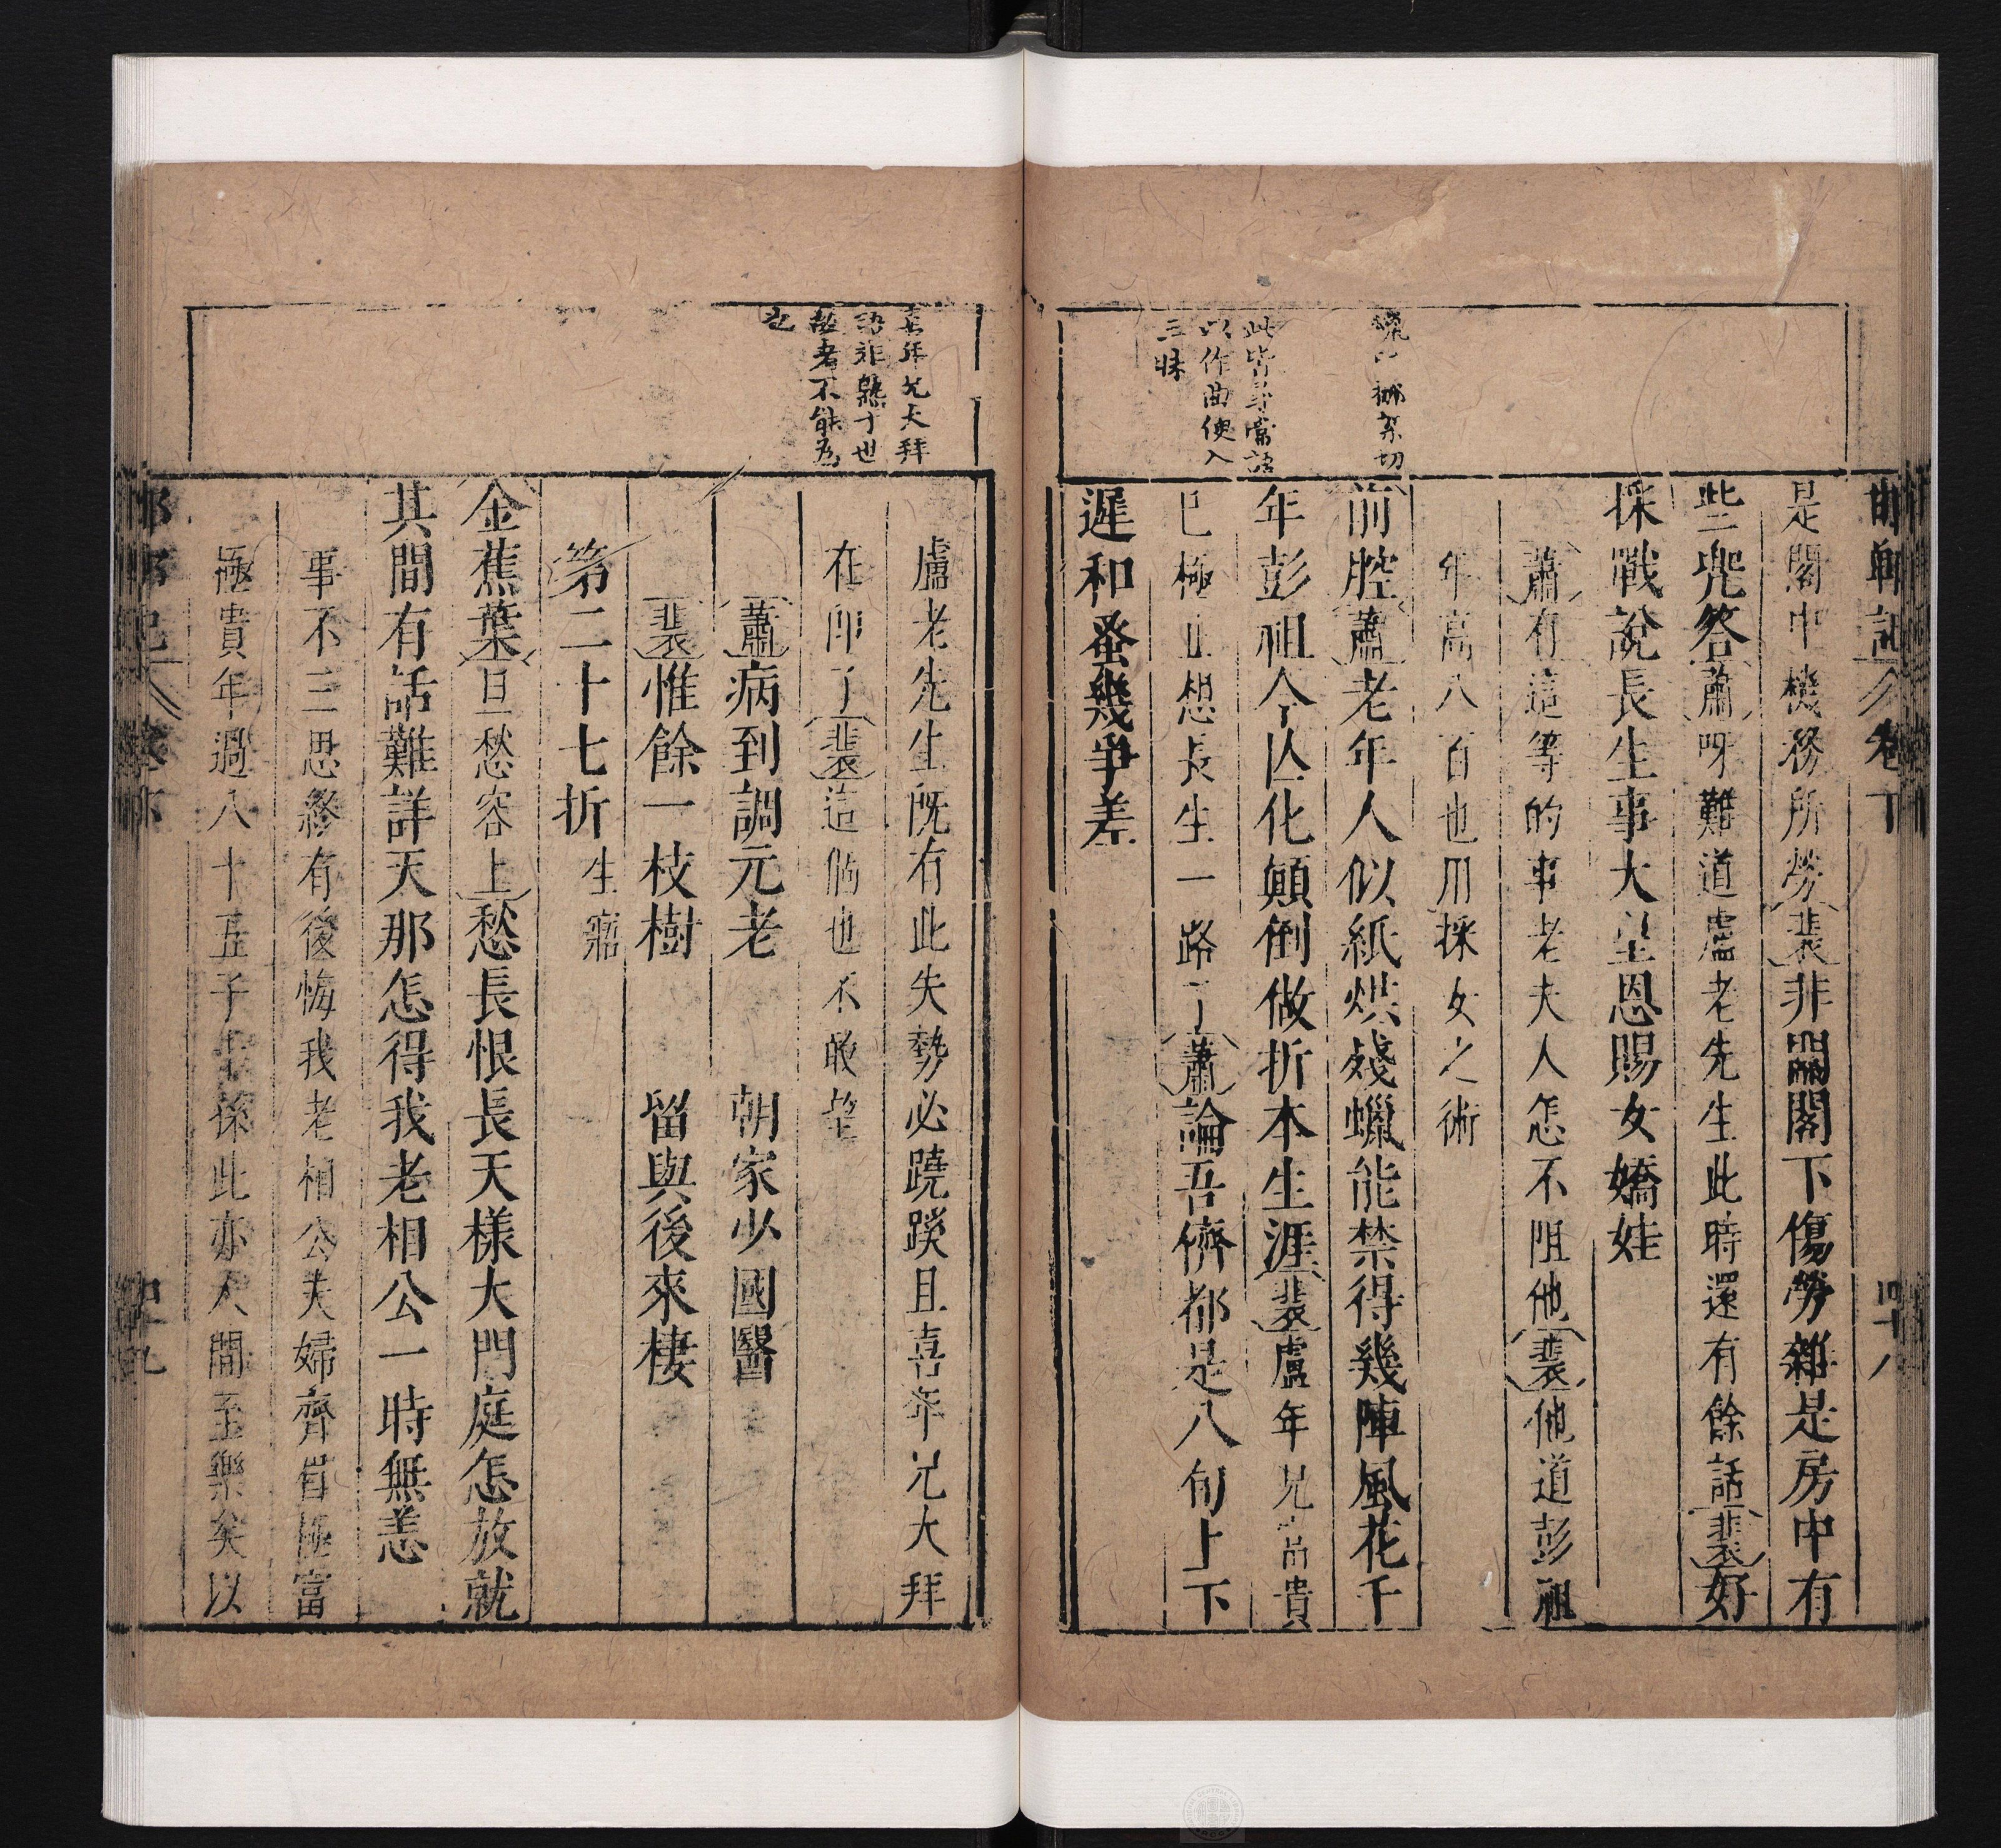 邯鄲記 卷下 四十八
是閣中機務所勞裴非關閣下傷勞雜是房中有
些兜答蕭呀難道盧老先生此時還有餘話裴好
採戰說長生事大皇恩賜女嬌娃
蕭有這等的事老夫人怎不阻他裴他道彭祖
年高八百也用採女之術
前腔蕭老年人似紙烘殘蠟能禁得幾陣風花千
年彭祖今亾化顛倒做折本生涯裴盧年兄富貴
已極止想長生一路了蕭論吾儕都是八旬上下
遲和蚤幾爭差
此皆尋常話
以作曲便入
三昧
盧老先生既有此失勢必蹺蹊且喜年兄大拜
在卽了裴這個也不敢望
蕭病到調元老 朝家少國醫
裴惟餘一枝樹 留與後來棲
第二十七折 生寤
金蕉葉旦愁容上愁長恨長天樣大門庭怎放就
其間有話難詳天那怎得我老相公一時無恙
事不三思終有後悔我老相公夫婦齊眉極富
極貴年過八十五子十孫此亦人間至樂矣以
喜年兄大拜
語非熟于世
故者不能爲
也
邯鄲記 卷下 四十九